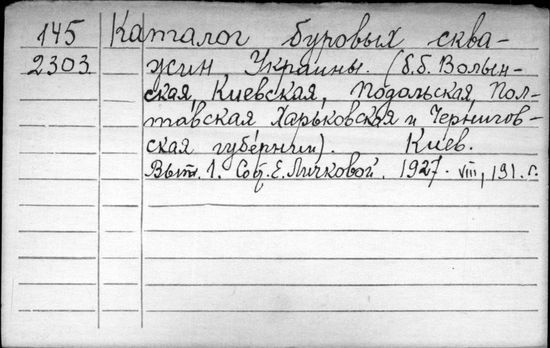 145 Каталог буровых сква-
2303. жин Украины. (б.б. Волын-
ская, Киевская, Подольская, Пол-
тавская Харьковская и Чернигов-
ская губернии). Киев.
Вып. 1. Е. Личковой. 1927. VIII, 191. г.